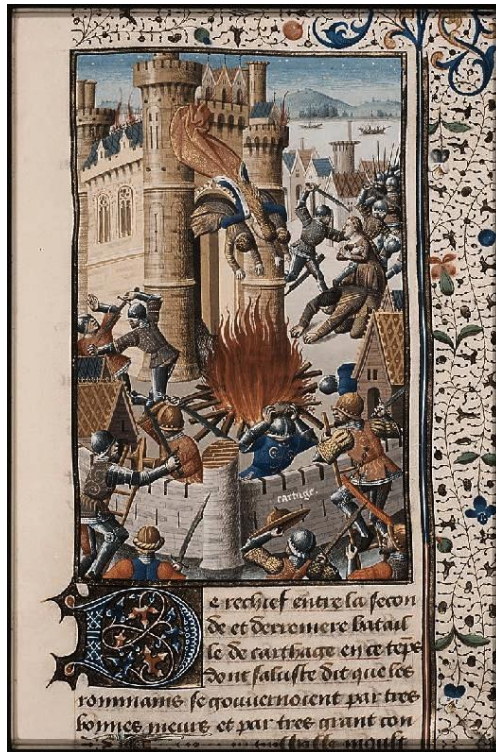 cartage
De rechief entre la secon
de et derreniere batail
le de carthage en ce temps
dont saluste dit que les
rommains se gouuernoient par tres
bonnes meurs et par tres grant con